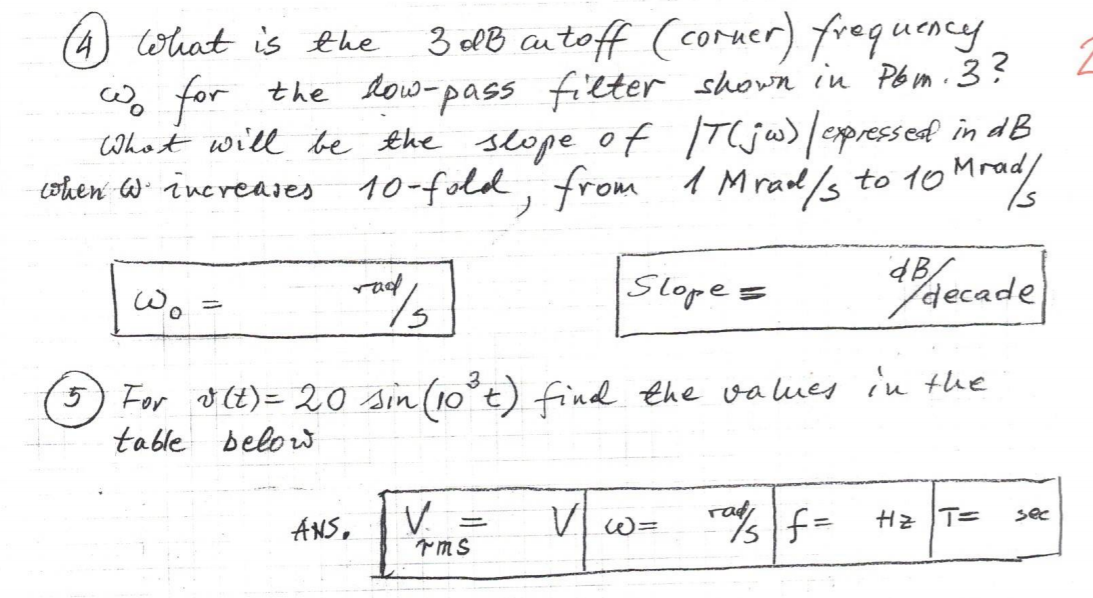 ④ What is the 3dB cutoff (corner) frequency
ω₀ for the low-pass filter shown in Pbm. 3?
What will be the slope of |T(jω)| expressed in dB
when ω increases 10-fold, from 1 Mrad/s to 10 Mrad/s
ω₀ = rad/s
Slope = dB/decade
⑤ For v(t) = 20 sin(10³t) find the values in the
table below
ANS. Vrms = V ω = rad/s f = Hz T = sec